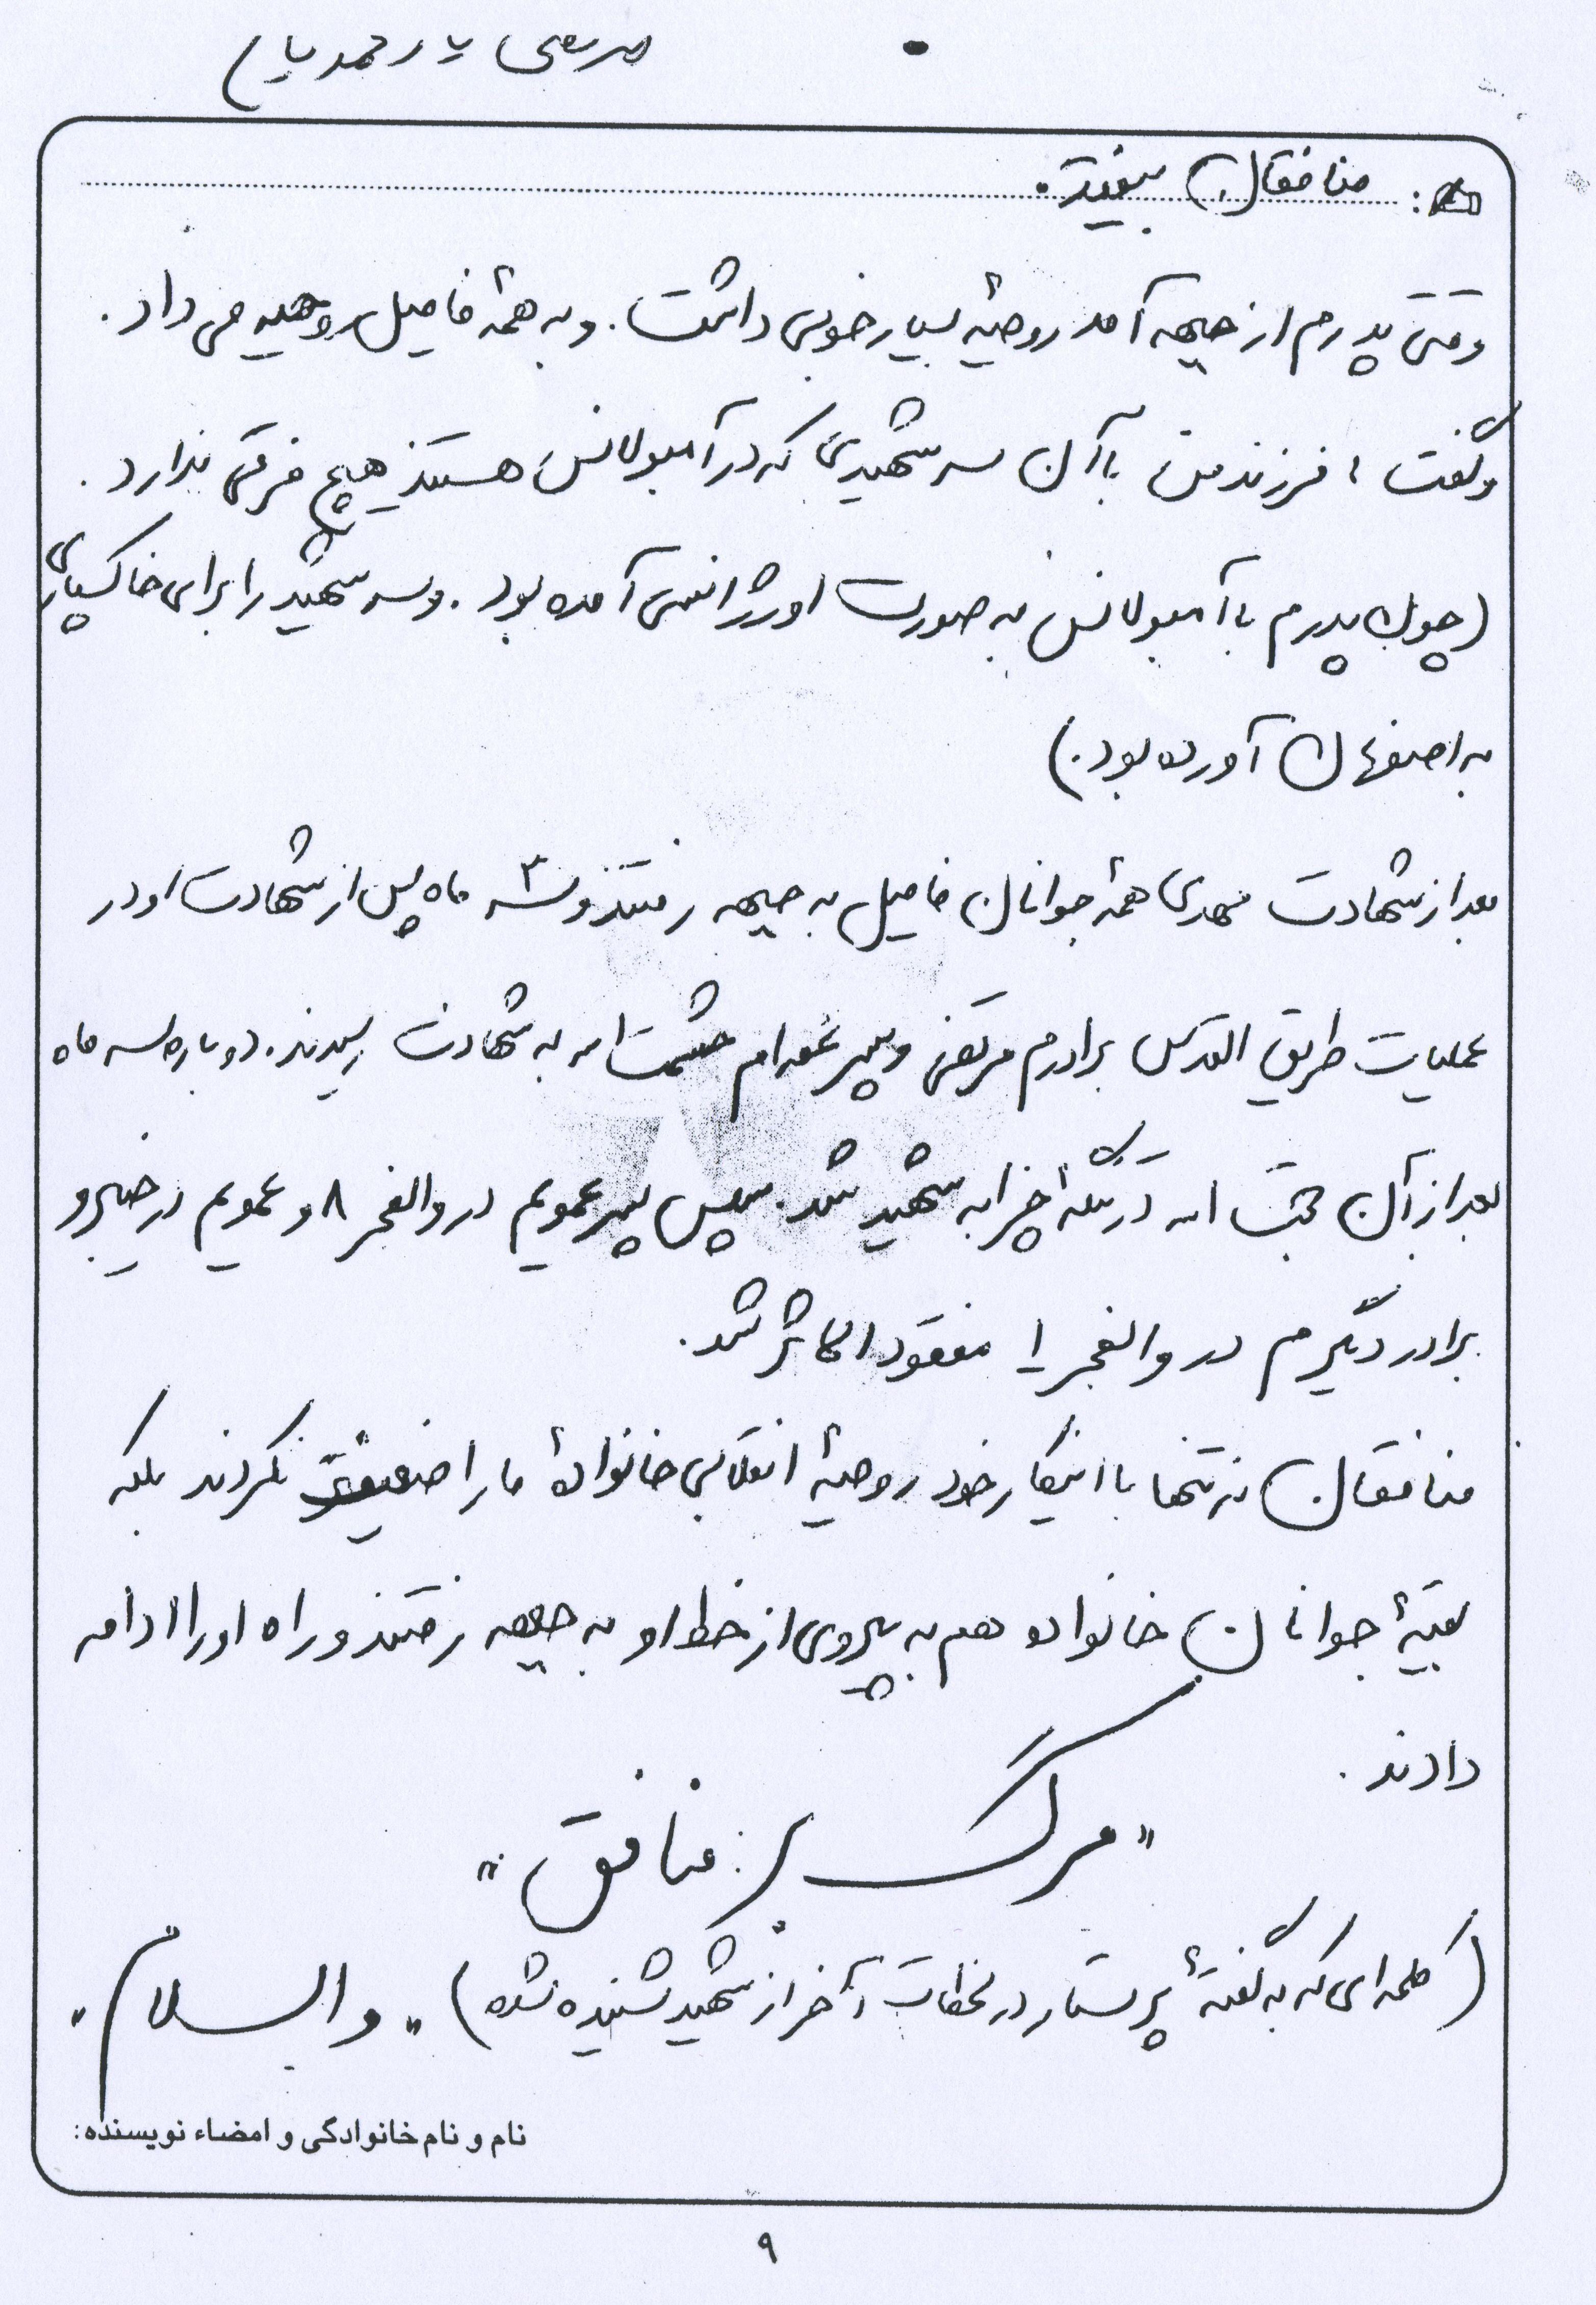 مرتضی یار محمدیان
منافقان بیفتد.
وقتی پدرم از جبهه آمد روحیهٔ بسیار خوبی داشت. و به همهٔ فامیل روحیه می داد.
و گفت، فرزند من با آن سه شهیدی که در آمبولانس هستند هیچ فرقی ندارد.
(چون پدرم با آمبولانس به صورت اورژانسی آمده بود. و سه شهید را برای خاکسپاری
به اصفهان آورده بود.)
بعد از شهادت مهدی همهٔ جوانان فامیل به جبهه رفتند و سه ۳ ماه پس از شهادت او در
عملیات طریق القدس برادرم مرتضی و پسر عمه ام حشمت اله به شهادت رسیدند. دوباره سه ماه
بعد از آن حجت اله در تنگهٔ چزابه شهید شد. سپس پسر عمویم در والفجر ۸ و عمویم در خیبر و
برادر دیگرم در والفجر ۱ مفقود الاثر شد.
منافقان نه تنها با اینکار خود روحیهٔ انقلابی خانوادهٔ ما را ضعیف نکردند بلکه
بقیهٔ جوانان خانواده هم به پیروی از خط او به جبهه رفتند و راه او را ادامه
دادند.
"مرگ بر منافق"
(کلمه ای که به گفتهٔ پرستار در لحظات آخر از شهید شنیده شده) "والسلام"
نام و نام خانوادگی و امضاء نویسنده:
۹